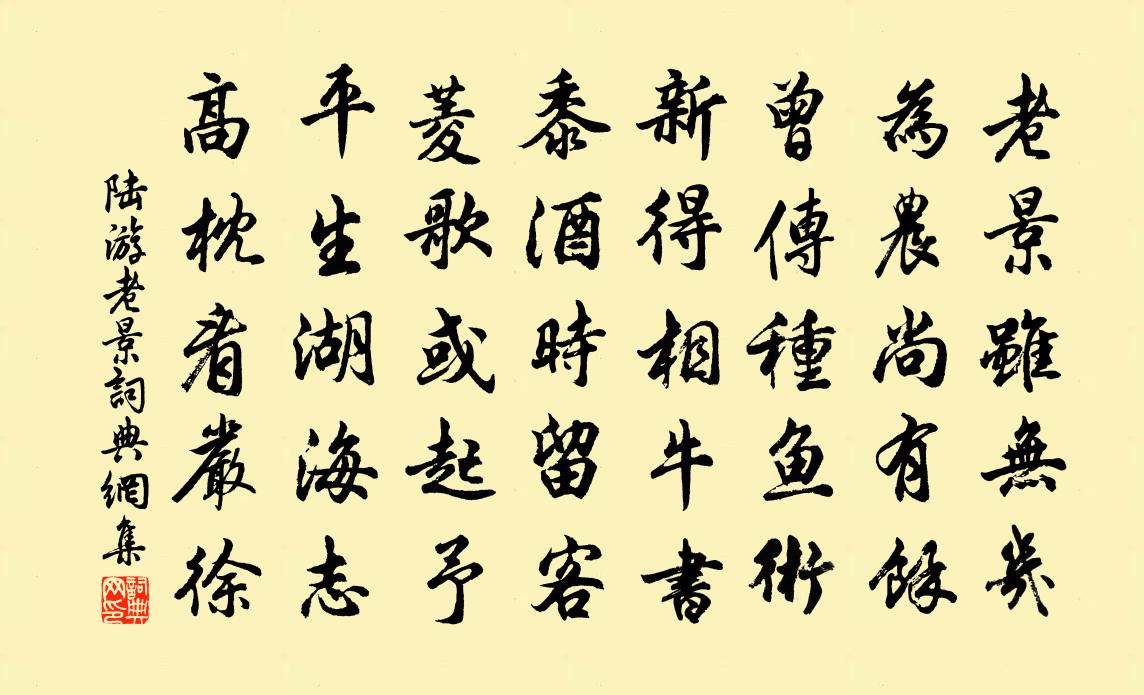 老景雖無幾
為農尚有餘
曾傳種魚術
新得相牛書
黍酒時留客
菱歌或起予
平生湖海志
高枕看嚴徐
陆游老景詞典網集
詞典
网印